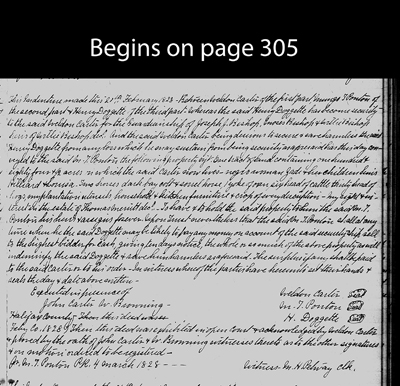 Begins on page 305
This Indenture made this 21st February 1828 Between Weldon Carter of the first part Jennings T. Ponton of
the second part & Henry Doggett of the third part: whereas the said Henry Doggett has become security
to the said Weldon Carter for the Guardianship of Joseph J. Bishop, Bishop & Bishop
heirs of Bishop decd. And the said Weldon Carter being desirous to secure & save harmless the said
Henry Doggett from any loss which he may sustain from being security as aforesaid has this day con-
veyed to the said M. T. Ponton the following property by: One tract of land containing one hundred &
eighty four & acres on which the said Carter now lives, negro woman & her children
Hilliard & Louisa. Two horses dark bay colt & sorrel horse, yoke of oxen, six head of cattle, thirty head of
hogs, plantation utensils, household & kitchen furniture & crop of every description - my right &
in the estate of Thomas decd. To have & to hold the said property to him the said M. T.
Ponton his heirs & assigns forever. Upon Trust nevertheless that the said M. T. Ponton shall at any
time when he the said Doggett may be likely to pay any money on account of the said securityship, sell
to the highest bidder for cash, giving ten days notice, the whole or so much of the above property as will
indemnify the said Doggett & save him harmless as aforesaid. The surplus if any shall be paid
to the said Carter or to his order. In witness whereof the parties have hereunto set their hands &
seals the day & date above written -
Executed in presence of Weldon Carter Seal
John Carter W. Browning - M. T. Ponton Seal
Halifax County. Then this deed was H. Doggett Seal
Feby Co. 1828 Then this deed was exhibited in open court & acknowledged by Weldon Carter
& proved by the oath of John Carter & W. Browning witnesses thereto as to the other signatures
& on motion ordered to be registered -
Jr. M. T. Ponton P.R. 4 March 1828 - - - Witness M. H. Pettway clk.